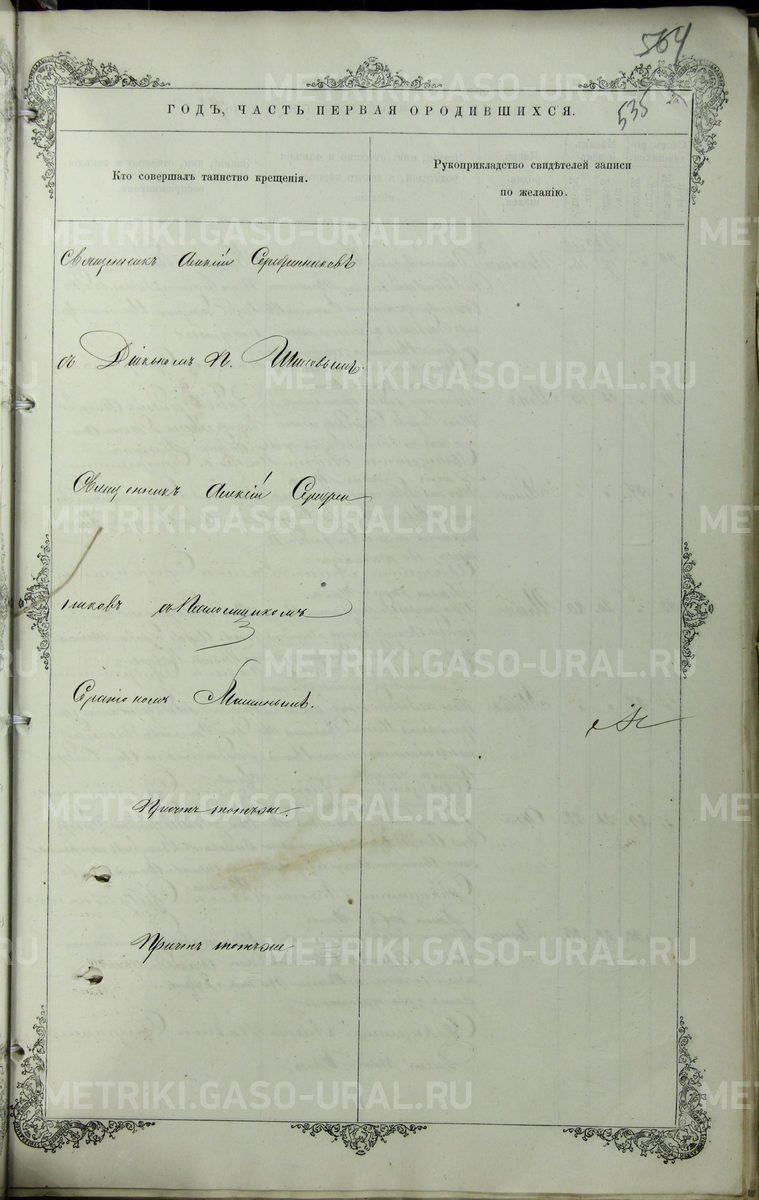 564
535
ГОДЪ, ЧАСТЬ ПЕРВАЯ О РОДИВШИХСЯ.
Кто совершалъ таинство крещенія.
Рукоприкладство свидѣтелей записи
по желанію.
Священникъ Алексій Серебренниковъ
съ Діакономъ П.
Священникъ Алексій Серебрен
никовъ съ Псаломщикомъ
Серапіономъ
Причтъ тотъ же.
Причтъ тотъ же
METRIKI.GASO-URAL.RU